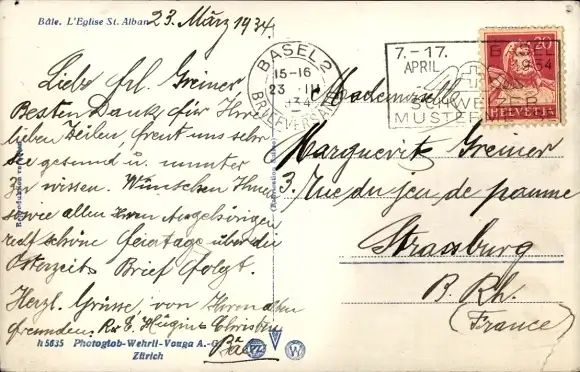 Bâle. L'Eglise St. Alban
23. März 1934.
Liebe Frl. Greiner
Besten Dank für Ihre
lieben Zeilen, freut uns sehr
Sie gesund u. munter
zu wissen. Wünschen Ihnen
sowie allen Ihren Angehörigen
recht schöne Feiertage über die
Osterzeit. Brief folgt.
Herzl. Grüsse von Ihren alten
Freunden.
Basel
h 5635 Photoglob-Wehrli-Vouga A.-G.
Zürich
BASEL 2
15-16
23. III
34
BRIEFVERSAND
7.-17.
APRIL
BASEL
1934
SCHWEIZER
MUSTER
20
HELVETIA
Mademoiselle
Marguerite Greiner
3. Rue du jeu de paume
Strassburg
B. Rh.
(France)
W